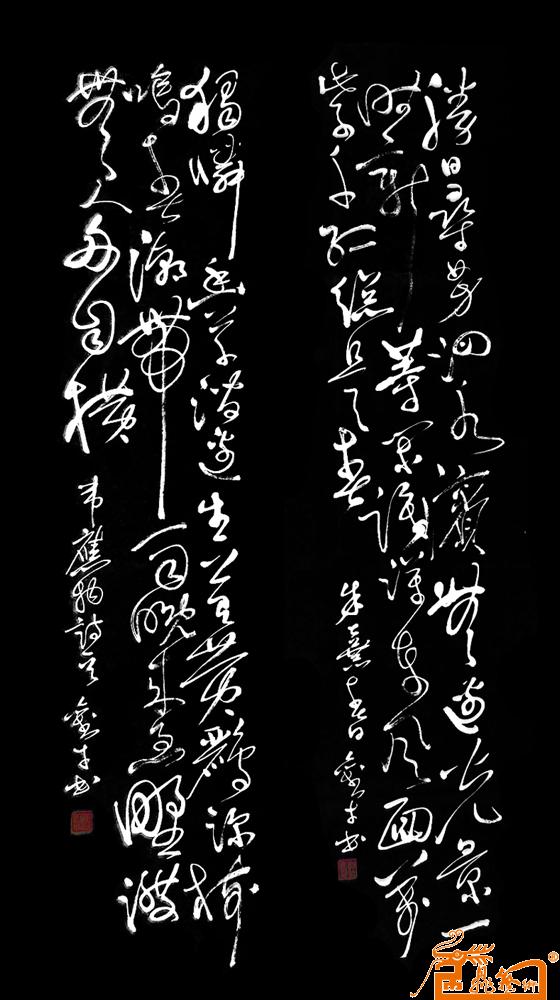 勝日尋芳泗水濱無邊光景一
時新等閒識得東風面萬
紫千紅總是春
朱熹春日 書
獨憐幽草澗邊生上有黃鸝深樹
鳴春潮帶雨晚來急野渡
無人舟自橫
韋應物詩 書